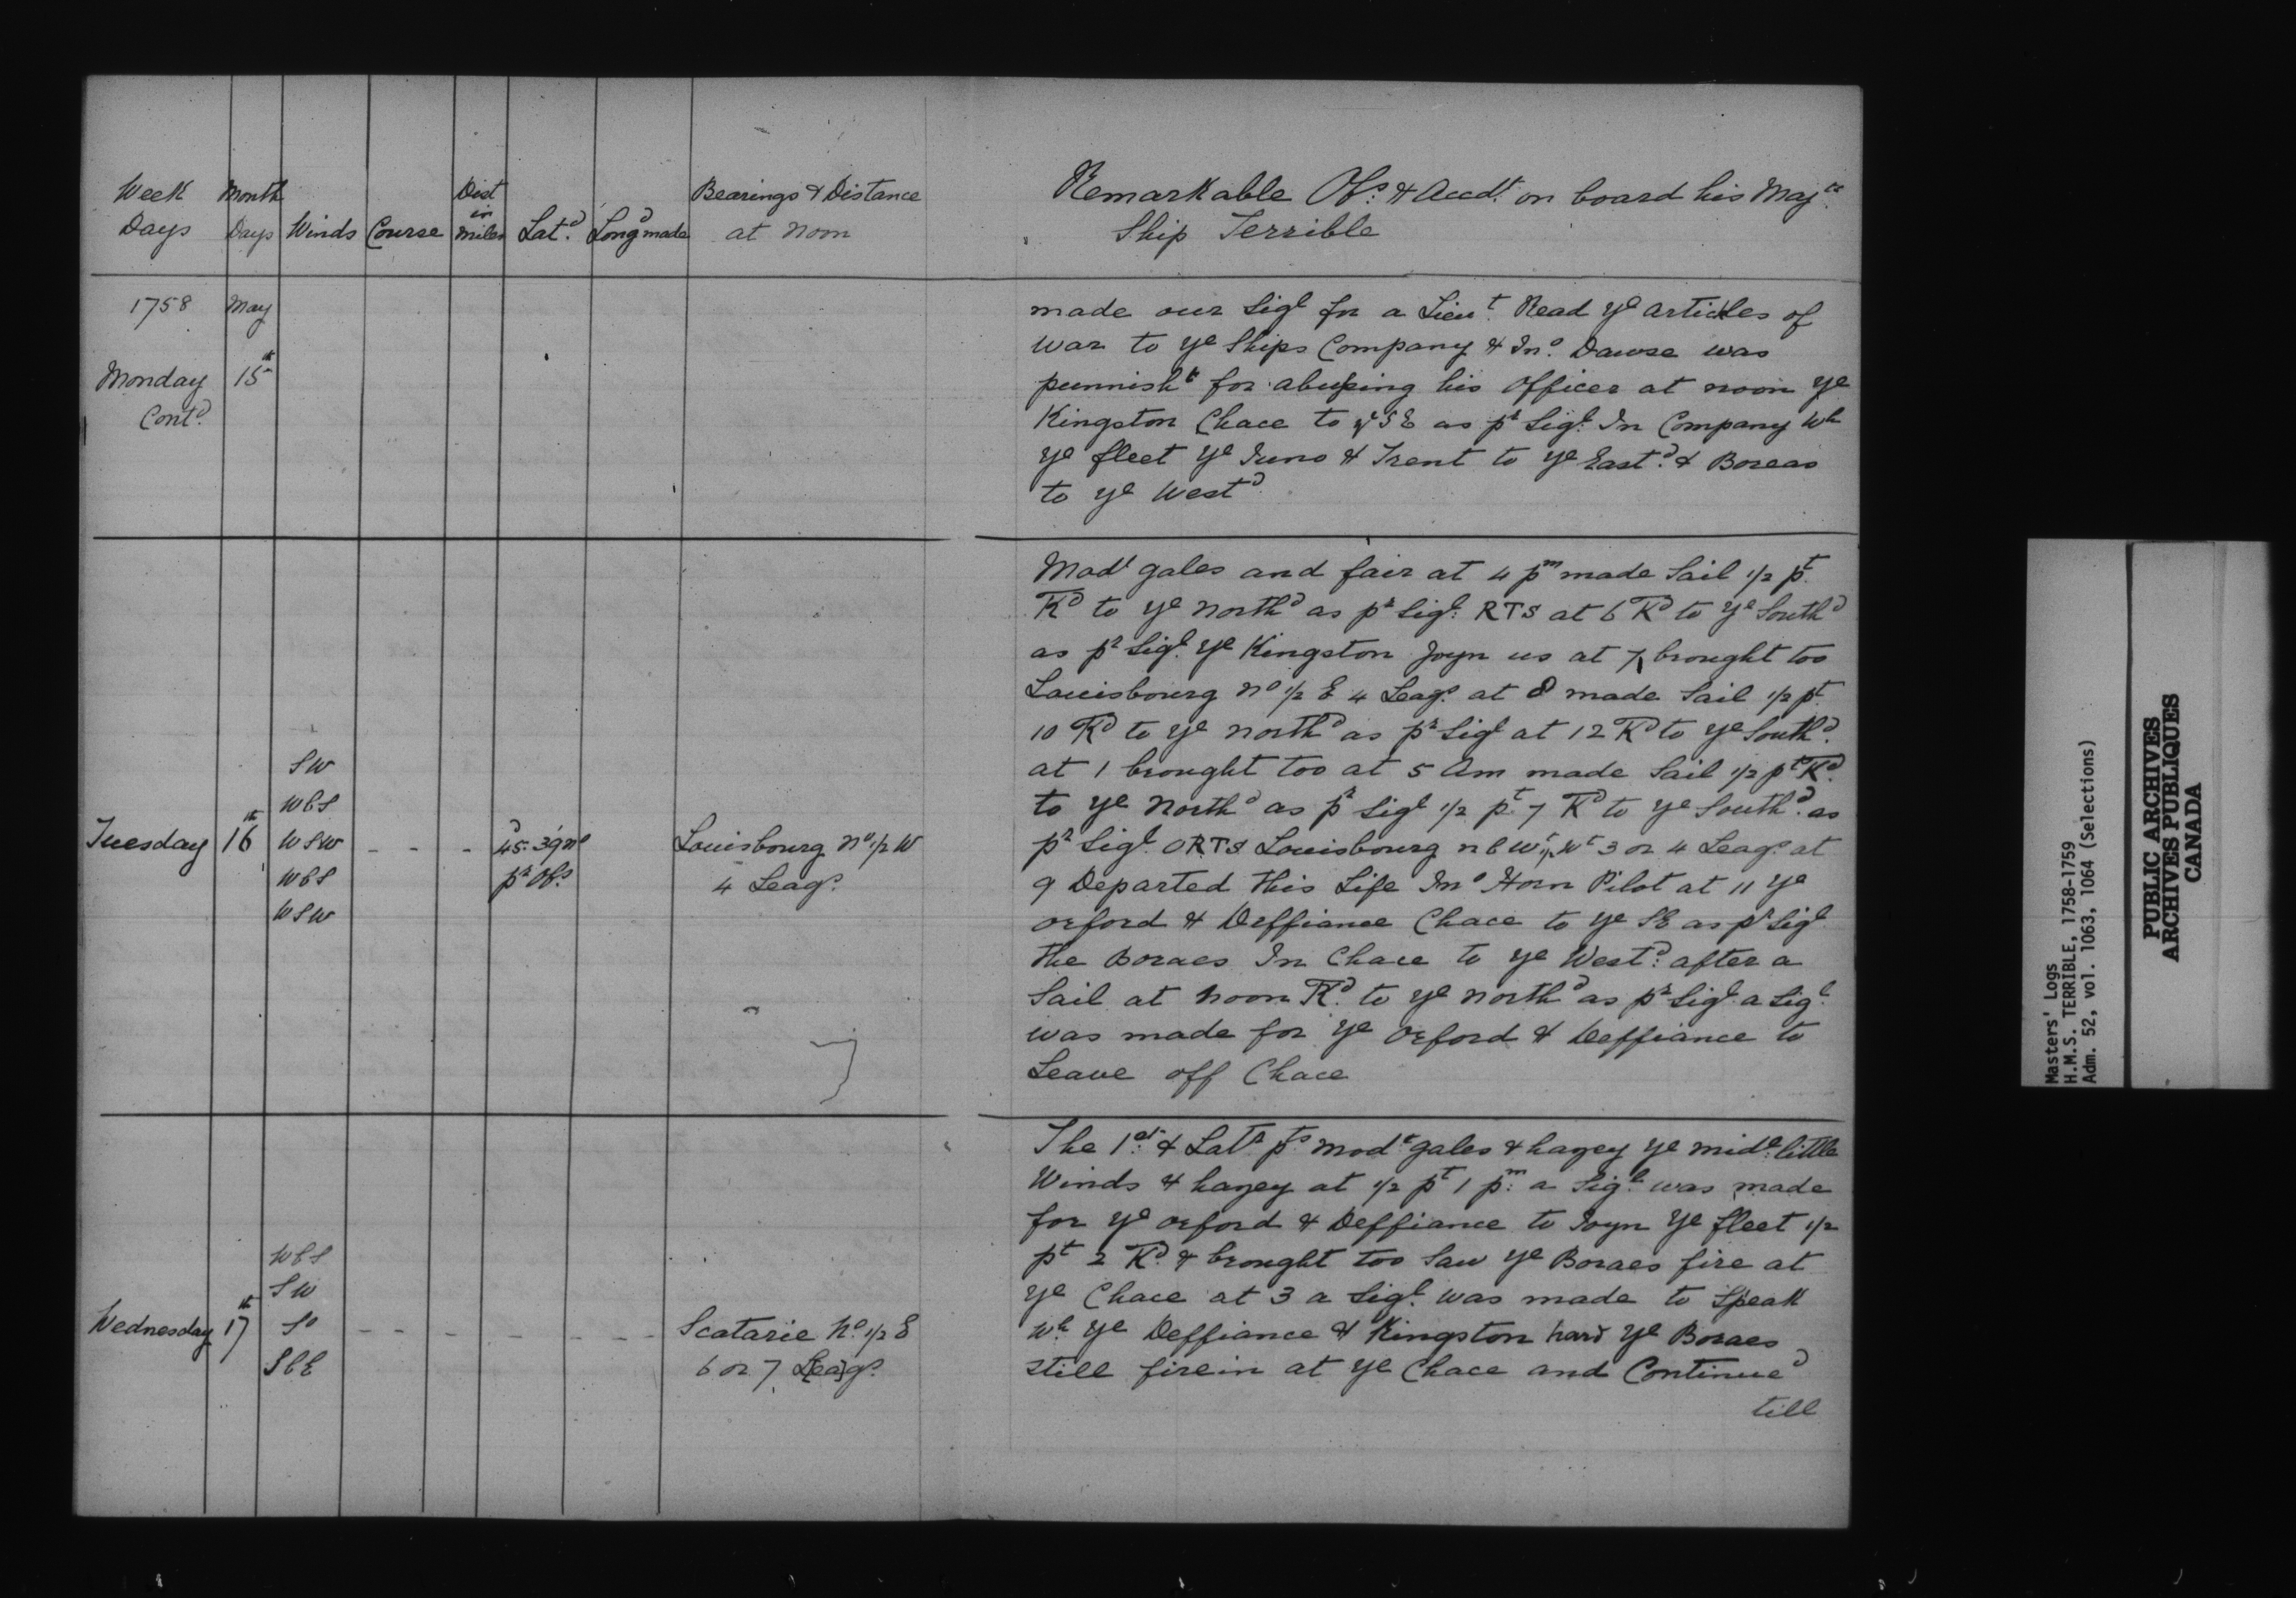 Week Days
Month Days
Winds
Course
Dist in miles
Latd.
Longd made
Bearings & Distance at Noon
Remarkable Obs. & Accdt. on board his Majts.
Ship Terrible
1758 May
Monday 15th
Contd.
made our Sigl for a Lieut. Read ye articles of
War to ye Ships Company & Jno. Dawse was
punnisht for abusing his Officer at noon ye
Kingston Chace to ye SE as pr Sigl. In Company Wh
ye fleet ye Juno & Trent to ye Eastd. & Boreas
to ye Westd.
Tuesday 16th
SW
WbS
WSW
WbS
WSW
- - -
45d. 39' No
pr Obs.
Louisbourg No 1/2 W
4 Leags.
Modt gales and fair at 4 pm made Sail 1/2 pt.
TKd to ye Northd as pr Sigl. RTS at 6 TKd to ye Southd
as pr Sigl. ye Kingston Joyn us at 7 brought too
Louisbourg No 1/2 E 4 Leags. at 8 made Sail 1/2 pt.
10 TKd to ye Northd as pr Sigl at 12 TKd to ye Southd.
at 1 brought too at 5 Am made Sail 1/2 pt TKd.
to ye Northd as pr Sigl 1/2 pt. 7 TKd to ye Southd. as
pr Sigl. ORTS Louisbourg n b W 1/2 Wt 3 or 4 Leags. at
9 Departed this Life Jno Horn Pilot at 11 ye
Orford & Deffiance Chace to ye SE as pr Sigl.
the Boraes In Chace to ye Westd. after a
Sail at Noon TKd. to ye Northd as pr Sigl. a Sigl.
was made for ye Orford & Deffiance to
Leave off Chace
Wednesday 17th
WbS
SW
So
SbE
- - - - - - -
Scatarie No. 1/2 E
6 or 7 L[ea]gs.
The 1st. & Latr pts. modt gales & hazey ye midl. little
Winds & hazey at 1/2 pt 1 pm. a Sigl. was made
for ye Orford & Deffiance to Joyn ye fleet 1/2
pt 2 TKd. & brought too Saw ye Boraes fire at
ye Chace at 3 a Sigl. was made to Speak
Wh. ye Deffiance & Kingston hard ye Boraes
still firein at ye Chace and Continued
till
Masters' Logs
H.M.S. TERRIBLE, 1758-1759
Adm. 52, vol. 1063, 1064 (Selections)
PUBLIC ARCHIVES
ARCHIVES PUBLIQUES
CANADA